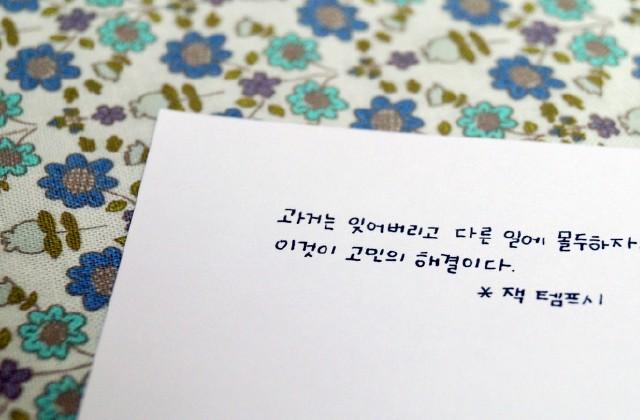 과거는 잊어버리고 다른 일에 몰두하자.
이것이 고민의 해결이다.
* 잭 템프시